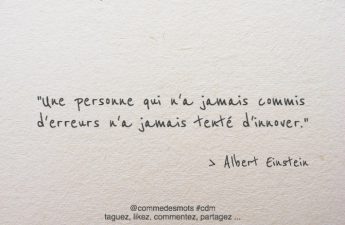 "Une personne qui n'a jamais commis
d'erreurs n'a jamais tenté d'innover."
> Albert Einstein
@commedesmots #cdm
taguez, likez, commentez, partagez ...